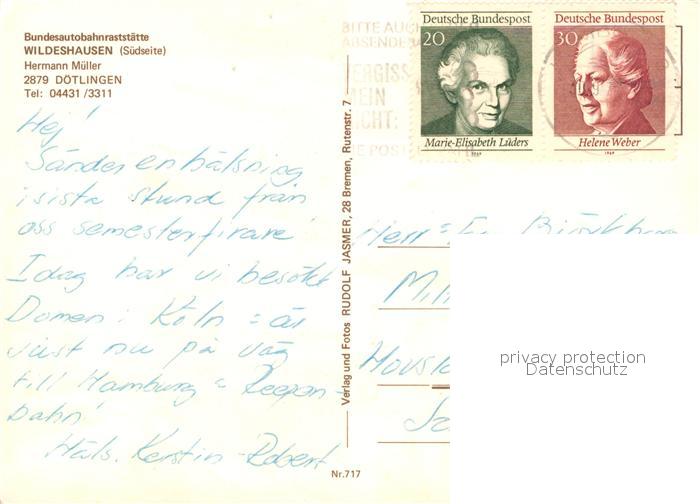 Bundesautobahnraststätte
WILDESHAUSEN (Südseite)
Hermann Müller
2879 DÖTLINGEN
Tel: 04431/3311
BITTE AUCH
ABSENDE
VERGISS
MEIN
NICHT:
DIE POST
Deutsche Bundespost
20
Marie-Elisabeth Lüders
1969
Deutsche Bundespost
30
Helene Weber
1969
Hej!
Sänder en hälsning
i sista stund från
oss semesterfirare!
Idag har vi besökt
Domen i Köln = är
just nu på väg
till Hamburg = Reepen-
bahn!
Häls. Kerstin - Robert
Verlag und Fotos RUDOLF JASMER, 28 Bremen, Rutenstr. 7
Nr.717
Herr = Fr
privacy protection
Datenschutz